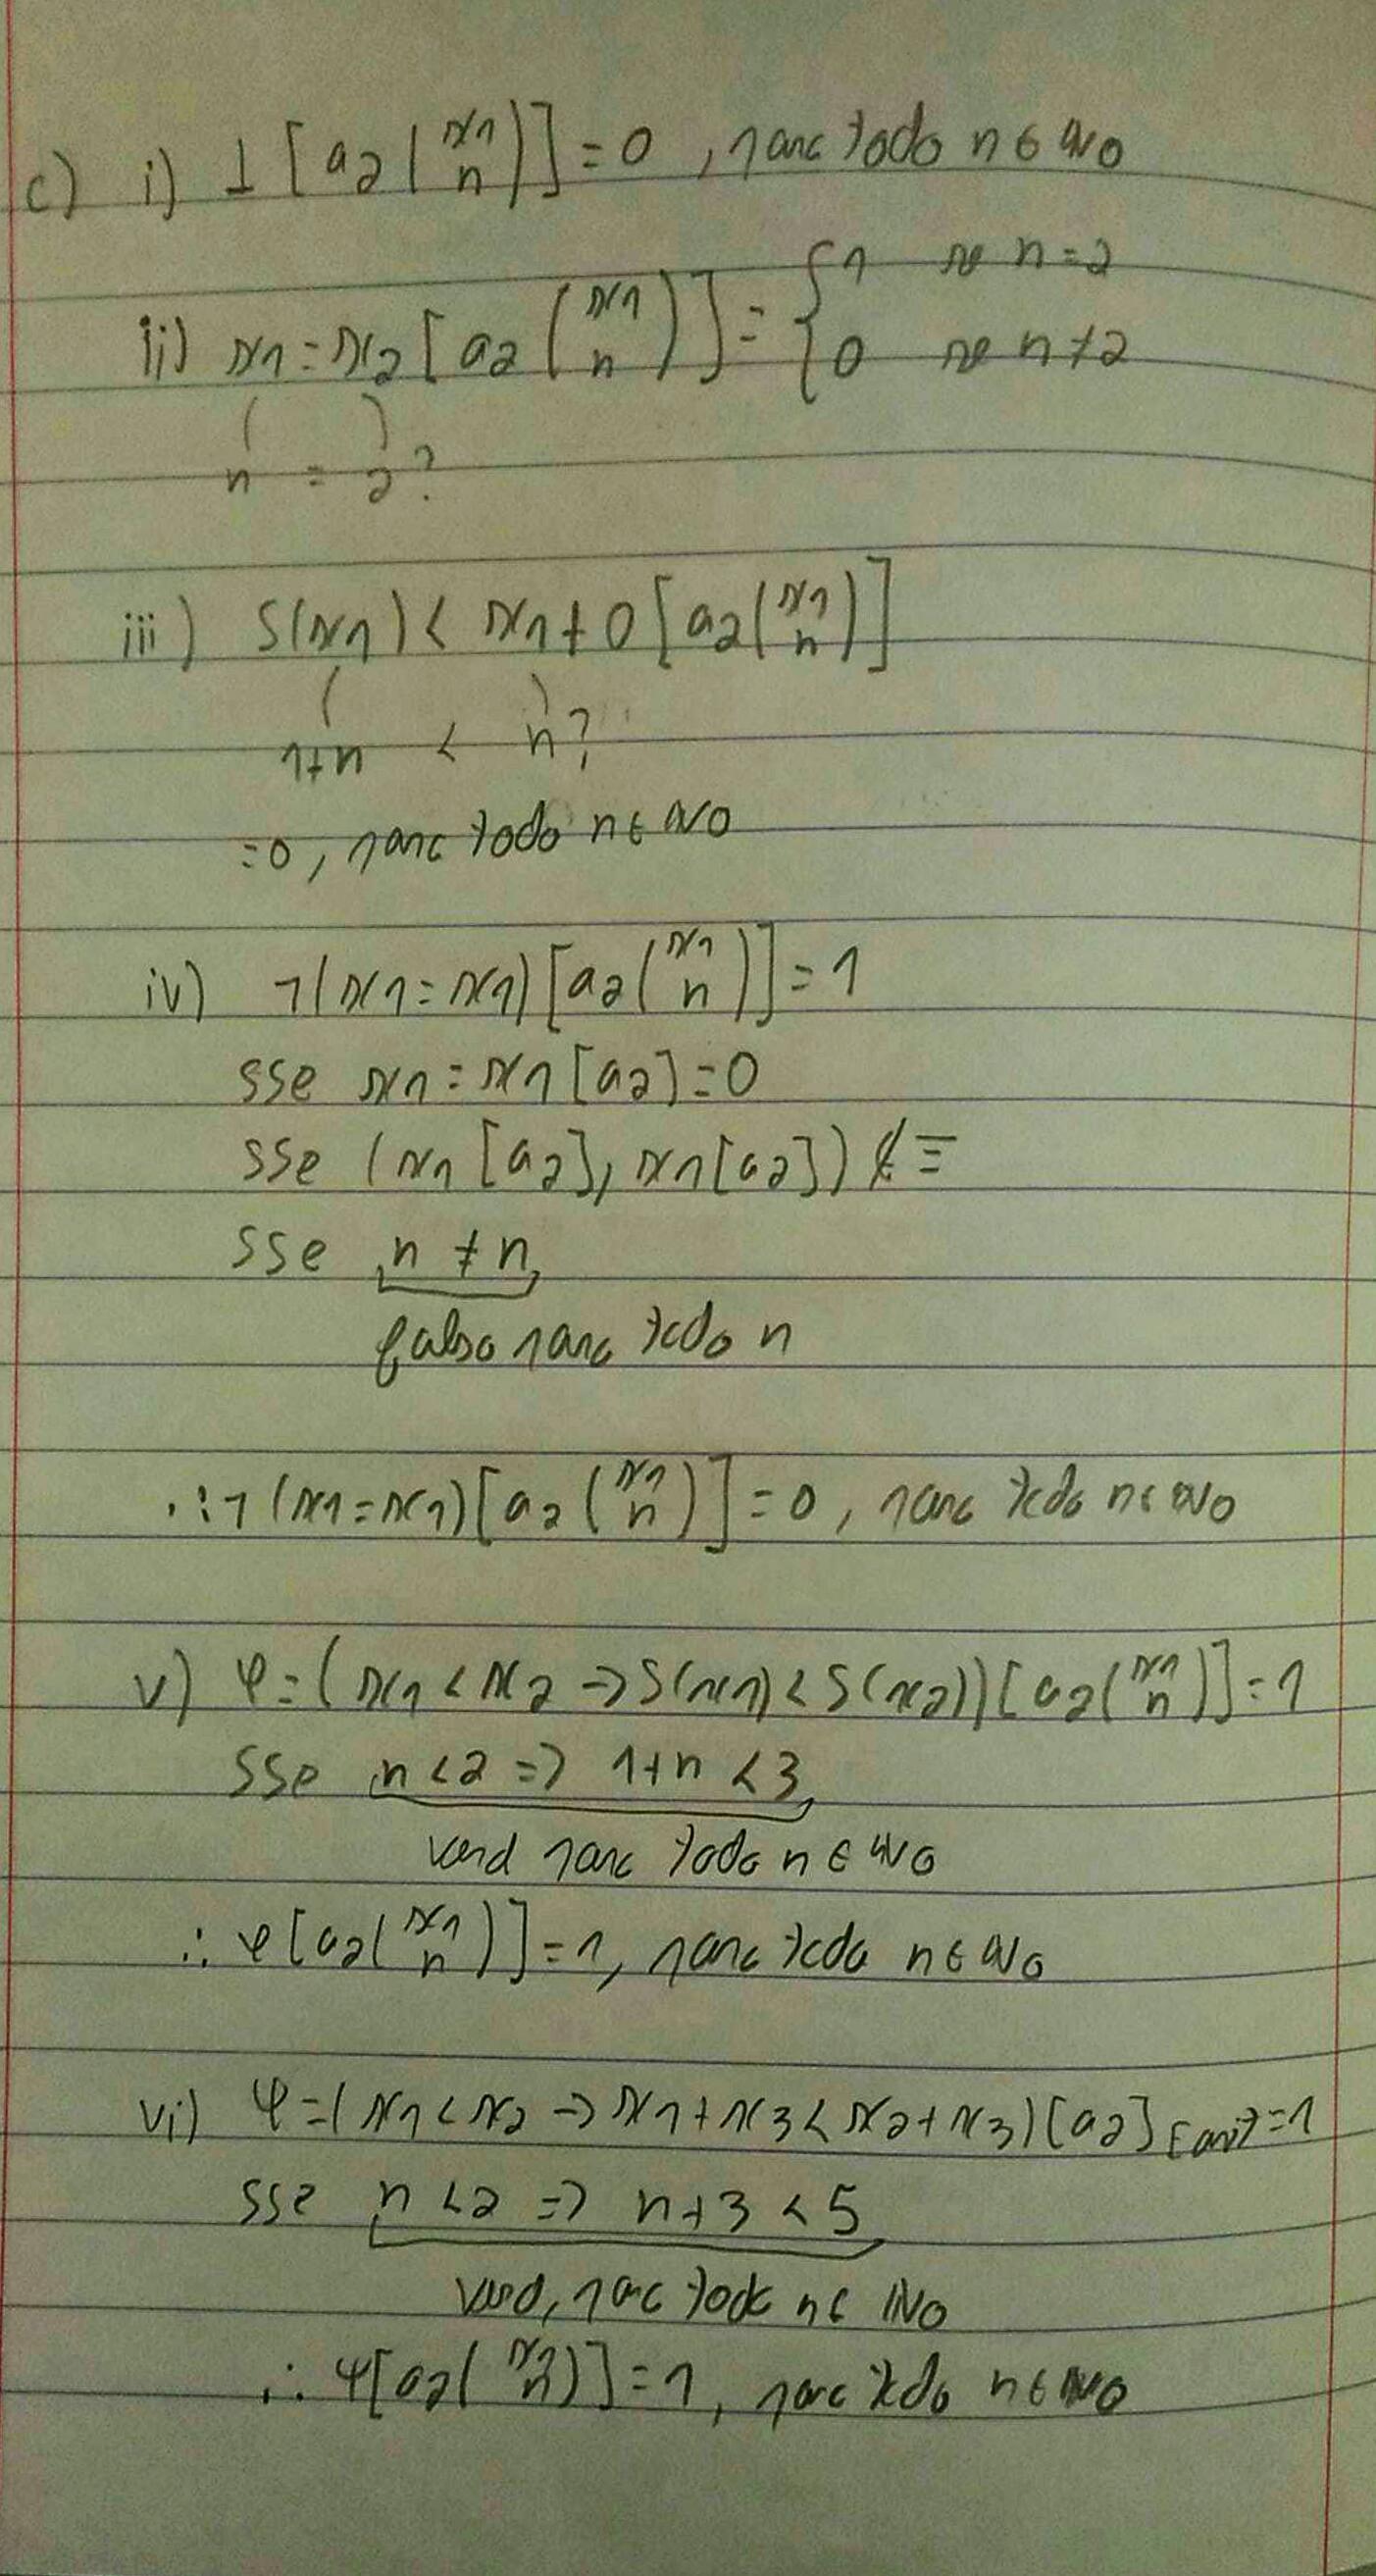 c) i) ⊥ [a₂ (x₁ n)] = 0 , para todo n ∈ ℕ₀
ii) x₁ = x₂ [a₂ (x₁ n)] = { 1 se n = 2
0 se n ≠ 2
n = 2 ?
iii) S(x₁) < x₁ + 0 [a₂ (x₁ n)]
1+n < n ?
= 0 , para todo n ∈ ℕ₀
iv) ¬(x₁ = x₁) [a₂ (x₁ n)] = 1
sse x₁ = x₁ [a₂] = 0
sse (x₁ [a₂], x₁ [a₂]) ∉ =
sse n ≠ n
falso para todo n
∴ ¬(x₁ = x₁) [a₂ (x₁ n)] = 0 , para todo n ∈ ℕ₀
v) φ = (x₁ < x₂ → S(x₁) < S(x₂)) [a₂ (x₁ n)] = 1
sse n < 2 ⇒ 1+n < 3
verd para todo n ∈ ℕ₀
∴ φ [a₂ (x₁ n)] = 1, para todo n ∈ ℕ₀
vi) ψ = (x₁ < x₂ → x₁ + x₃ < x₂ + x₃) [a₂] = 1
sse n < 2 ⇒ n + 3 < 5
verd, para todo n ∈ ℕ₀
∴ ψ [a₂ (x₁ n)] = 1 , para todo n ∈ ℕ₀